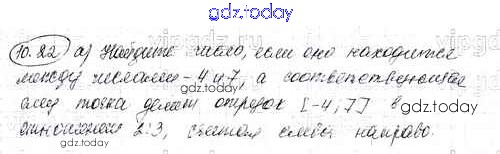 gdz.today
10.22 а) Найдите число, если оно находится
между числами -4 и 7, а соответствующая
ему точка делит отрезок [-4; 7] в
gdz.today
отношении 2:3, считая слева направо.
gdz.today